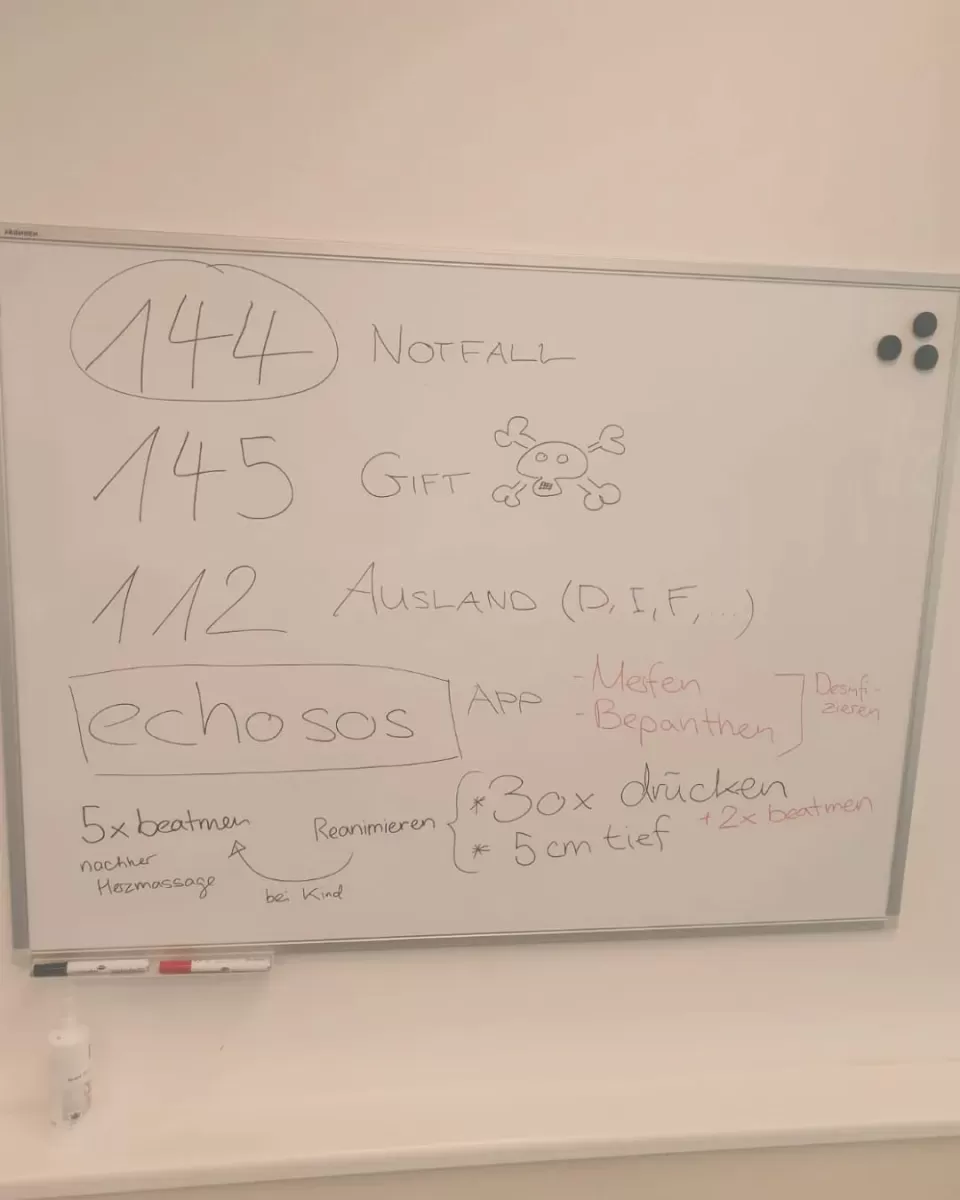 144 NOTFALL
145 GIFT
112 AUSLAND (D, I, F, ...)
echosos APP
- Merfen
- Bepanthen
Desinfi-
zieren
5x beatmen
nachher
Herzmassage
bei Kind
Reanimieren
* 30x drücken
+ 2x beatmen
* 5 cm tief